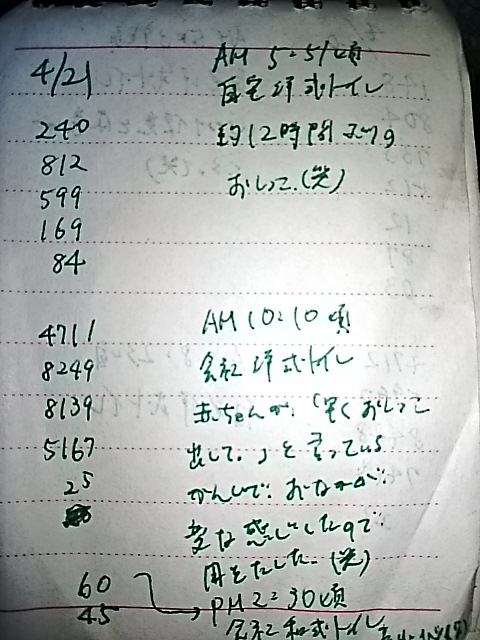 4/21 AM 5:51頃
自宅洋式トイレ
240 約12時間ぶりの
812 おしっこ.(笑)
599
169
84
4711 AM 10:10頃
8249 会社 洋式トイレ
8139 赤ちゃんが、「早くおしっこ
5167 出して。」と言っている
25 かんじで、おなかが、
変な感じしたので
用をたした。(笑)
60 PM 2:30頃
45 会社 和式トイレ